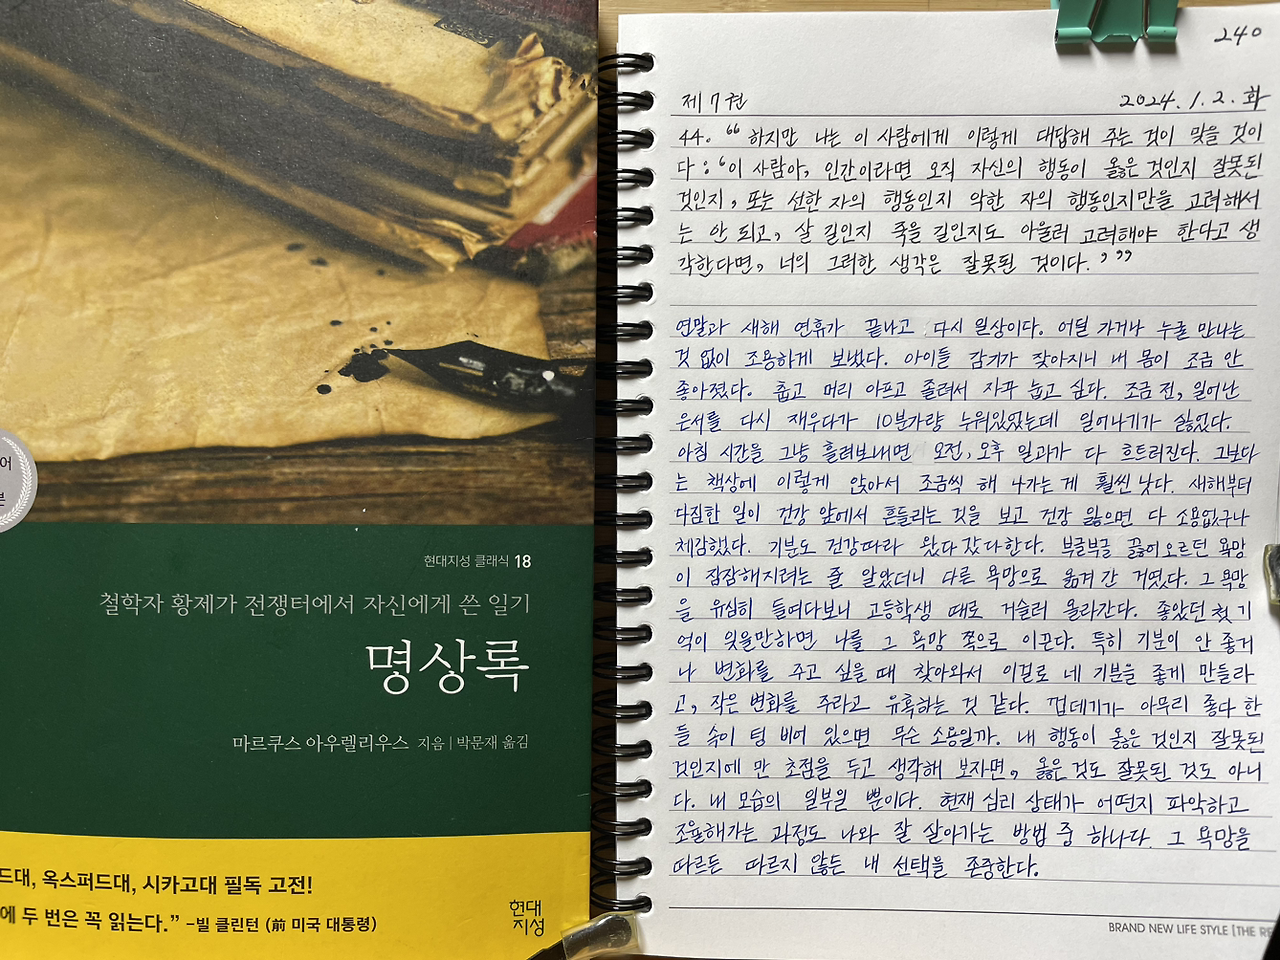 어
본
현대지성 클래식 18
철학자 황제가 전쟁터에서 자신에게 쓴 일기
명상록
마르쿠스 아우렐리우스 지음 | 박문재 옮김
드대, 옥스퍼드대, 시카고대 필독 고전!
에 두 번은 꼭 읽는다.” -빌 클린턴 (前 미국 대통령)
현대
지성
240
제7권 2024. 1. 2. 화
44. “ 하지만 나는 이 사람에게 이렇게 대답해 주는 것이 맞을 것이
다 : ‘이 사람아, 인간이라면 오직 자신의 행동이 옳은 것인지 잘못된
것인지, 또는 선한 자의 행동인지 악한 자의 행동인지만을 고려해서
는 안 되고, 살 길인지 죽을 길인지도 아울러 고려해야 한다고 생
각한다면, 너의 그러한 생각은 잘못된 것이다.’”
연말과 새해 연휴가 끝나고 다시 일상이다. 어딜 가거나 누굴 만나는
것 없이 조용하게 보냈다. 아이들 감기가 잦아지니 내 몸이 조금 안
좋아졌다. 춥고 머리 아프고 졸려서 자꾸 눕고 싶다. 조금 전, 일어난
은서를 다시 재우다가 10분가량 누워있었는데 일어나기가 싫었다.
아침 시간을 그냥 흘려보내면 오전, 오후 일과가 다 흐트러진다. 그보다
는 책상에 이렇게 앉아서 조금씩 해 나가는 게 훨씬 낫다. 새해부터
다짐한 일이 건강 앞에서 흔들리는 것을 보고 건강 잃으면 다 소용없구나
체감했다. 기분도 건강따라 왔다 갔다한다. 부글부글 끓어오르던 욕망
이 잠잠해지려는 줄 알았더니 다른 욕망으로 옮겨 간 거였다. 그 욕망
을 유심히 들여다보니 고등학생 때로 거슬러 올라간다. 좋았던 첫 기
억이 잊을만하면 나를 그 욕망 쪽으로 이끈다. 특히 기분이 안 좋거
나 변화를 주고 싶을 때 찾아와서 이걸로 네 기분을 좋게 만들라
고, 작은 변화를 주라고 유혹하는 것 같다. 껍데기가 아무리 좋다 한
들 속이 텅 비어 있으면 무슨 소용일까. 내 행동이 옳은 것인지 잘못된
것인지에 만 초점을 두고 생각해 보자면, 옳은 것도 잘못된 것도 아니
다. 내 모습의 일부일 뿐이다. 현재 심리 상태가 어떤지 파악하고
조율해가는 과정도 나와 잘 살아가는 방법 중 하나다. 그 욕망을
따르든 따르지 않든 내 선택을 존중한다.
BRAND NEW LIFE STYLE [THE RE